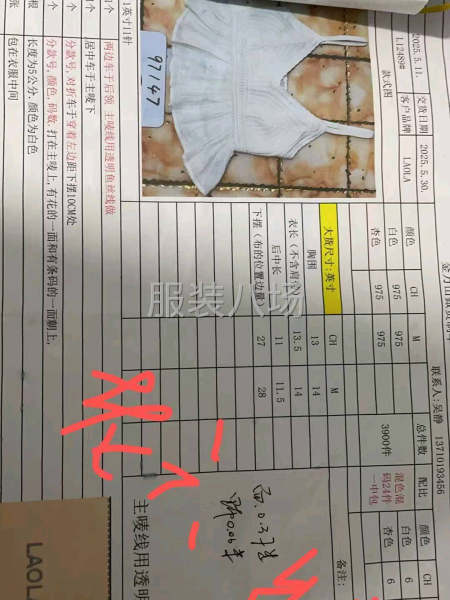 2025.5.11. 交货日期 2025.5.30.
L12489# 客户品牌 LAOLA
联系人:吴静 13710193456
款式图
97147
颜色 CH M 总件数 配比 颜色 CH
白色 975 975 3900件 混色混码24件一中包 白色 6
杏色 975 975 杏色 6
大货尺寸:英寸 CH M 备注:
胸围 13 14
衣长(不含肩 13.5 14
后中长 11 11.5
下摆(布的位置边量 27 28
1英寸11针
两边车于后领 主唛线用透明鱼丝线做
居中车于主唛下
分款号,对折车于穿着左边距下摆10CM处
分款号,颜色,码数,打在主唛上,有花的一面和有条码的一面朝上,
长度为5公分,颜色为白色
包在衣服中间
主唛线用透明
LAOLA
服装八场